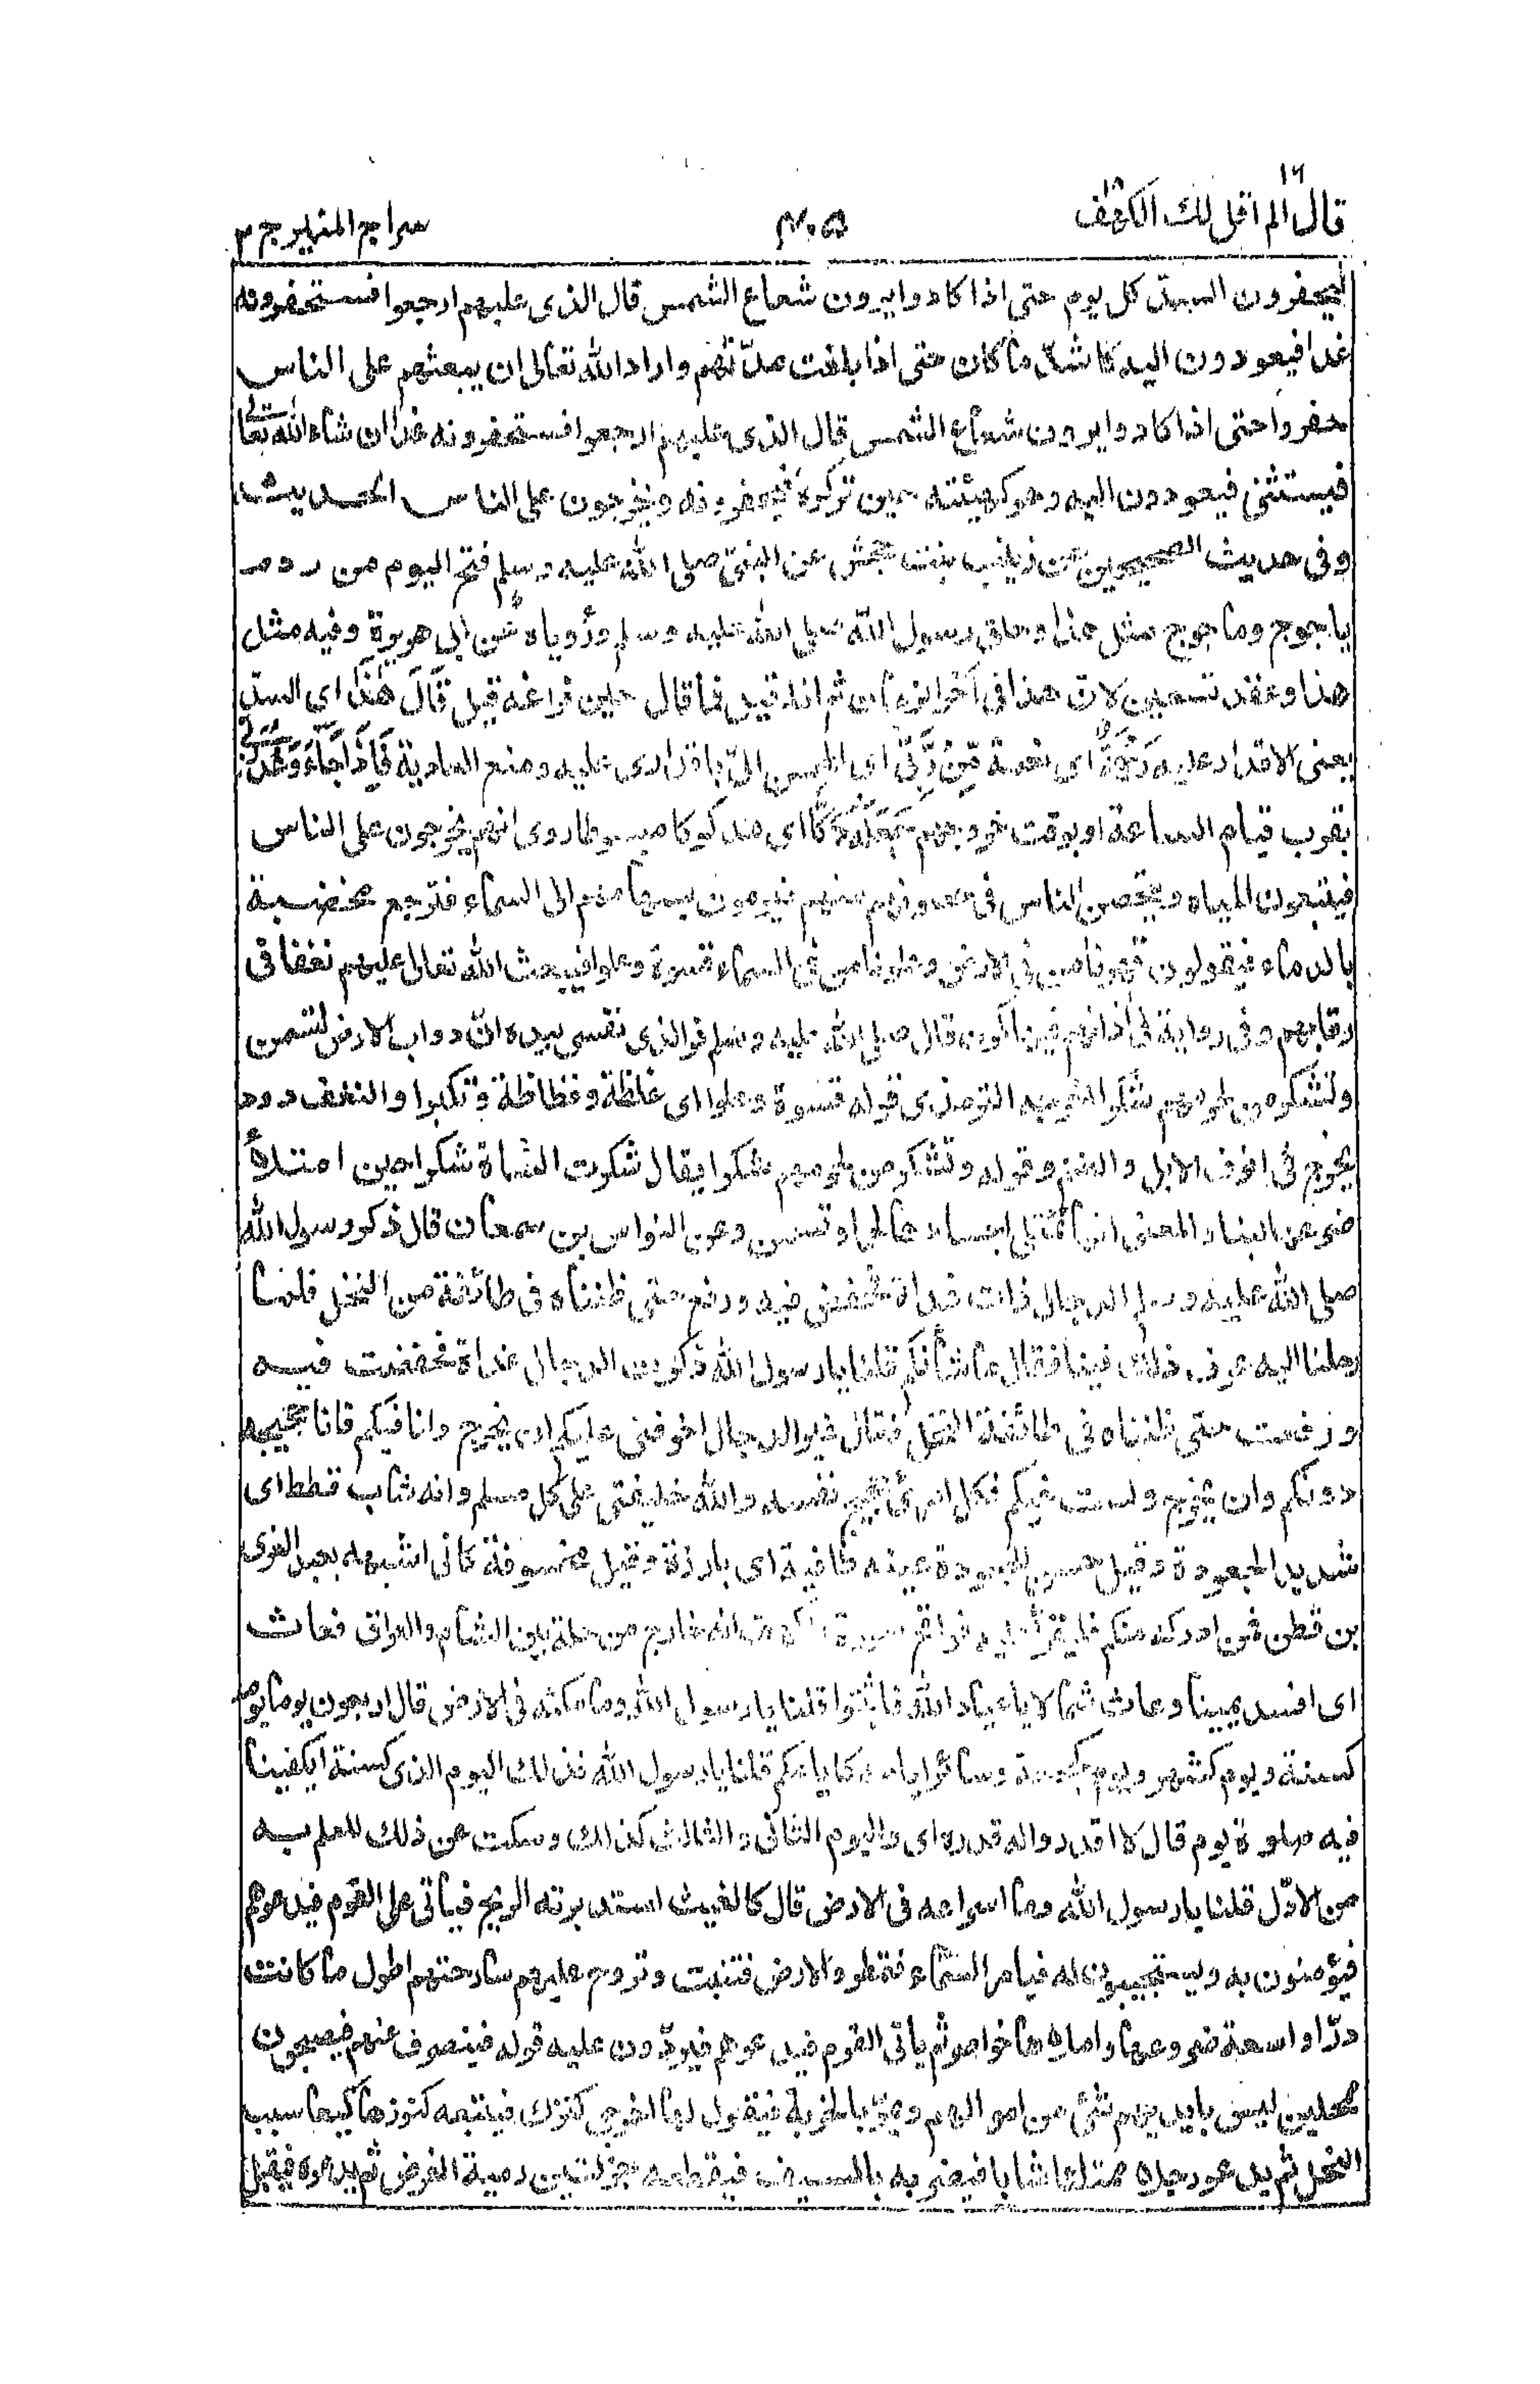 قال الم اقل لك الكهف
سراج المنير ج ٣
ليحفرون السد كل يوم حتى اذا كادوا يرون شعاع الشمس قال الذى عليهم ارجعوا فستحفرونه
غدا فيعودون اليه كاشد ما كان حتى اذا بلغت مدّتهم واراد الله تعالى ان يبعثهم على الناس
حفروا حتى اذا كادوا يرون شعاع الشمس قال الذى عليهم ارجعوا فستحفرونه غدا ان شاء الله تعالى
فيستثنى فيعودون اليه وهو كهيئته حين تركوه فيحفرونه ويخرجون على الناس الحديث
وفى حديث الصحيحين عن زينب بنت جحش عن النبىّ صلى الله عليه وسلم فتح اليوم من ردم
ياجوج وماجوج مثل هذا وحلق رسول الله صلى الله عليه وسلم ورُوياه عن ابى هريرة وفيه مثل
هذا وعقد تسعين لان هذا فى آخر الزمان ثم انه قيل فما قال حين فراغه قيل قَالَ هٰذَا اى السدّ
يعنى الاقدار عليه رَحْمَةٌ اى نعمة مِّنْ رَّبِّىْ اى المحسن الىّ باقدارى عليه ومنع العادية فَاِذَا جَآءَ وَعْدُ رَبِّىْ
بقرب قيام الساعة او بوقت خروجهم جَعَلَهٗ دَكًّا اى مدكوكا مبسوطا روى انهم يخرجون على الناس
فيتبعون المياه ويتحصن الناس فى حصونهم منهم فيرمون بسهامهم الى السماء فترجع مخضبة
بالدماء فيقولون قهرنا من فى الارض وعلونا من فى السماء قسوة وعلوا فيبعث الله تعالى عليهم نغفا فى
رقابهم وفى رواية فى آذانهم فيهلكون قال صلى الله عليه وسلم فوالذى نفسى بيده انّ دواب الارض لتسمن
وتشكر من لحومهم شكرا اخرجه الترمذى قوله قسوة وعلوا اى غلظة وفظاظة وتكبرا والنغف دود
يخرج فى انوف الابل والغنم وقوله وتشكر من لحومهم شكرا يقال شكرت الشاة شكرا حين امتلأ
ضرعها لبنا والمعنى انها تمتلئ اجسادها لحما وتسمن وعن النواس بن سمعان قال ذكر رسول الله
صلى الله عليه وسلم الدجال ذات غداة فخفض فيه ورفع حتى ظنناه فى طائفة من النخل فلما
رحنا اليه عرف ذلك فينا فقال ما شأنكم قلنا يا رسول الله ذكرت الدجال غداة فخفضت فيه
ورفعت حتى ظنناه فى طائفة النخل فقال غير الدجال اخوفنى عليكم ان يخرج وانا فيكم فانا حجيجه
دونكم وان يخرج ولست فيكم فكل امرئ حجيج نفسه والله خليفتى على كل مسلم وانه شاب قطط اى
شديد الجعودة وقيل حسن الجعودة عينه طافية اى بارزة وقيل مخسوفة كانى اشبهه بعبد العزى
بن قطن فمن ادركه منكم فليقرأ عليه فواتح سورة الكهف انه خارج من حلة بين الشام والعراق فعاث
اى افسد يمينا وعاث شمالا يا عباد الله فاثبتوا قلنا يا رسول الله وما مكثه فى الارض قال اربعون يوما يوم
كسنة ويوم كشهر ويوم كجمعة وسائر ايامه كايامكم قلنا يا رسول الله فذلك اليوم الذى كسنة ايكفينا
فيه صلوة يوم قال لا اقدروا له قدره اى واليوم الثانى والثالث كذلك وسكت عن ذلك للعلم به
من الاوّل قلنا يا رسول الله وما اسراعه فى الارض قال كالغيث استدبرته الريح فيأتى على القوم فيدعوهم
فيؤمنون به ويستجيبون له فيامر السّماء فتمطر والارض فتنبت وتروح عليهم سارحتهم اطول ما كانت
درّا واسعة ضروعها وامده خواصر ثم يأتى القوم فيدعوهم فيردّون عليه قوله فينصرف عنهم فيصبحون
ممحلين ليس بايديهم شئ من اموالهم ويمرّ بالخربة فيقول لها اخرجى كنوزك فيتبعه كنوزها كيعاسيب
النحل ثم يدعو رجلا ممتلئا شابا فيضربه بالسيف فيقطعه جزلتين رمية الغرض ثم يدعوه فيقبل